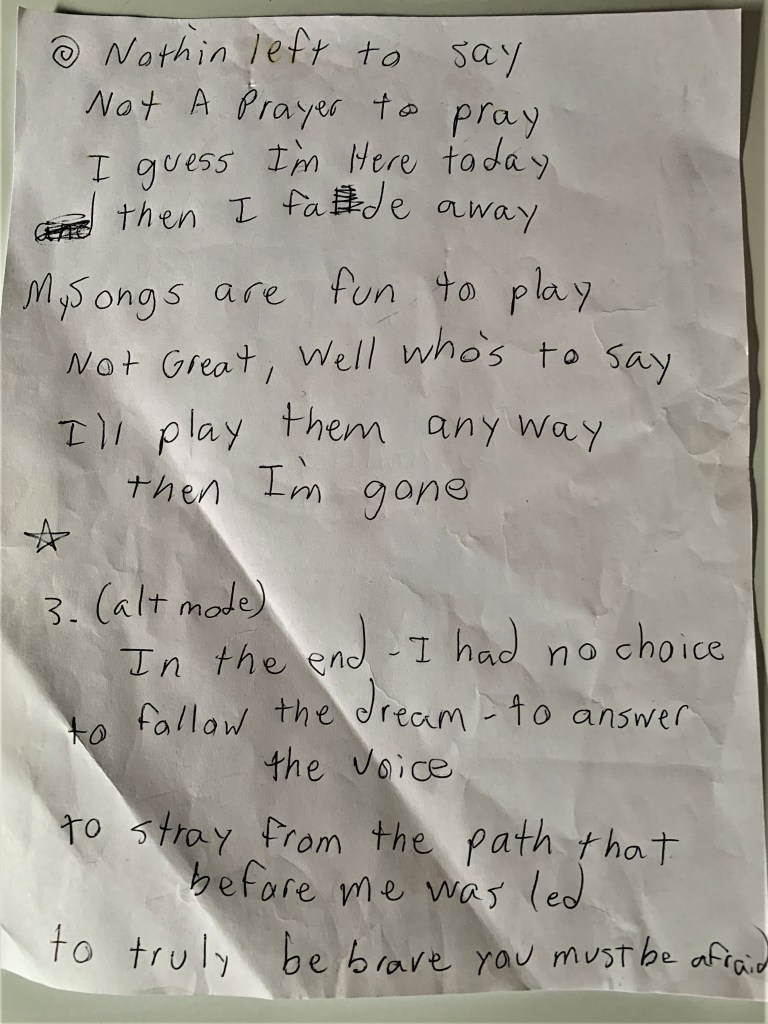 Nothin left to say
Not A Prayer to pray
I guess I'm Here today
then I fade away
My Songs are fun to play
Not Great, Well who's to say
I'll play them any way
then I'm gone
3. (alt mode)
In the end - I had no choice
to follow the dream - to answer
the voice
to stray from the path that
before me was led
to truly be brave you must be afraid